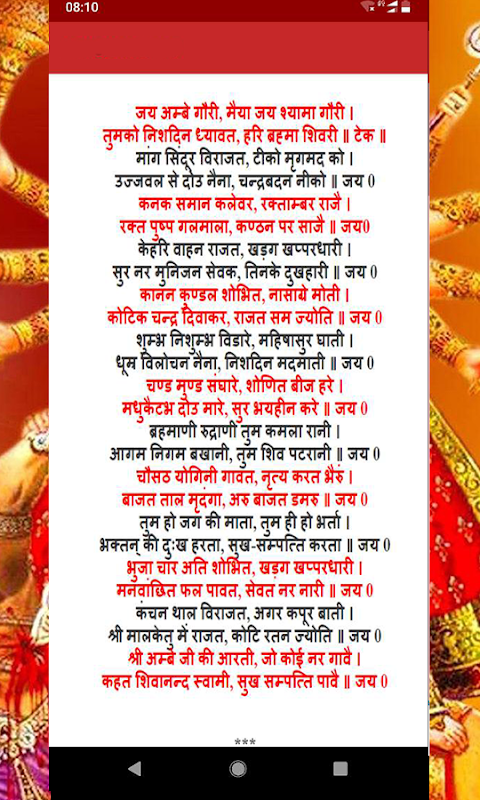 08:10
जय अम्बे गौरी, मैया जय श्यामा गौरी ।
तुमको निशदिन ध्यावत, हरि ब्रह्मा शिवरी ॥ टेक ॥
मांग सिंदूर विराजत, टीको मृगमद को ।
उज्जवल से दोउ नैना, चन्द्रबदन नीको ॥ जय 0
कनक समान कलेवर, रक्ताम्बर राजै ।
रक्त पुष्प गलमाला, कण्ठन पर साजै ॥ जय0
केहरि वाहन राजत, खड़ग खप्परधारी ।
सुर नर मुनिजन सेवक, तिनके दुखहारी ॥ जय 0
कानन कुण्डल शोभित, नासाग्रे मोती ।
कोटिक चन्द्र दिवाकर, राजत सम ज्योति ॥ जय 0
शुम्भ निशुम्भ विडारे, महिषासुर घाती ।
धूम्र विलोचन नैना, निशदिन मदमाती ॥ जय 0
चण्ड मुण्ड संघारे, शोणित बीज हरे ।
मधुकैटभ दोउ मारे, सुर भयहीन करे ॥ जय 0
ब्रहमाणी रुद्राणी तुम कमला रानी ।
आगम निगम बखानी, तुम शिव पटरानी ॥ जय 0
चौसठ योगिनी गावत, नृत्य करत भैरुं ।
बाजत ताल मृदंगा, अरु बाजत डमरु ॥ जय 0
तुम हो जग की माता, तुम ही हो भर्ता ।
भक्तन् की दुःख हरता, सुख-सम्पत्ति करता ॥ जय 0
भुजा चार अति शोभित, खड़ग खप्परधारी ।
मनवांछित फल पावत, सेवत नर नारी ॥ जय 0
कंचन थाल विराजत, अगर कपूर बाती ।
श्री मालकेतु में राजत, कोटि रतन ज्योति ॥ जय 0
श्री अम्बे जी की आरती, जो कोई नर गावै ।
कहत शिवानन्द स्वामी, सुख सम्पत्ति पावै ॥ जय 0
***